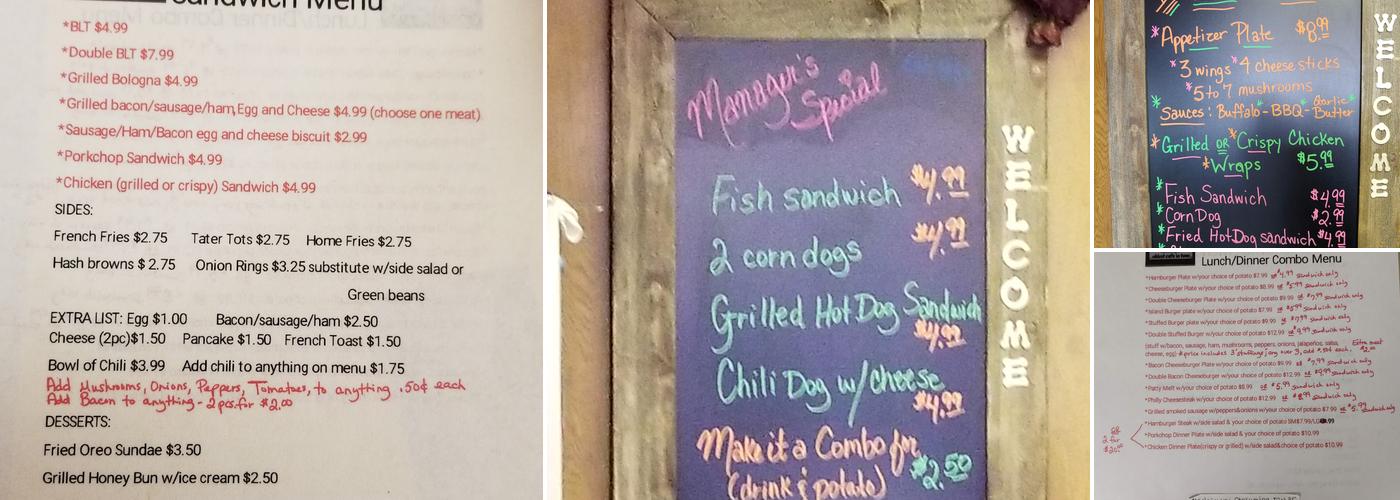 Sandwich Menu
*BLT $4.99
*Double BLT $7.99
*Grilled Bologna $4.99
*Grilled bacon/sausage/ham,Egg and Cheese $4.99 (choose one meat)
*Sausage/Ham/Bacon egg and cheese biscuit $2.99
*Porkchop Sandwich $4.99
*Chicken (grilled or crispy) Sandwich $4.99
SIDES:
French Fries $2.75 Tater Tots $2.75 Home Fries $2.75
Hash browns $ 2.75 Onion Rings $3.25 substitute w/side salad or
Green beans
EXTRA LIST: Egg $1.00 Bacon/sausage/ham $2.50
Cheese (2pc)$1.50 Pancake $1.50 French Toast $1.50
Bowl of Chili $3.99 Add chili to anything on menu $1.75
Add Mushrooms, Onions, Peppers, Tomatoes, to anything .50¢ each
Add Bacon to anything - 2 pcs. for $2.00
DESSERTS:
Fried Oreo Sundae $3.50
Grilled Honey Bun w/ice cream $2.50
Manager's
Special
Fish sandwich $4.99
2 corn dogs $4.99
Grilled Hot Dog Sandwich
$4.99
Chili Dog w/cheese
$4.99
Make it a Combo for
$2.50
(drink & potato)
WELCOME
*Appetizer Plate $8.99
*3 wings *4 cheese sticks
*5 to 7 mushrooms
*Sauces: Buffalo - BBQ - Garlic Butter
*Grilled or *Crispy Chicken
*Wraps $5.99
*Fish Sandwich $4.99
*Corn Dog $2.99
*Fried Hot Dog sandwich $4.99
WELCOME
Lunch/Dinner Combo Menu
*Hamburger Plate w/your choice of potato $7.99 or $4.99 sandwich only
*Cheeseburger Plate w/your choice of potato $8.99 or $5.99 sandwich only
*Double Cheeseburger Plate w/your choice of potato $9.99 or $7.99 sandwich only
*Island Burger plate w/your choice of potato $7.99 or $5.99 sandwich only
*Stuffed Burger plate w/your choice of potato $9.99 or $7.99 sandwich only
*Double Stuffed Burger w/your choice of potato $12.99 or $9.99 sandwich only
(stuff w/bacon, sausage, ham, mushrooms, peppers, onions, jalapeños, salsa, Extra meat
cheese, egg) *price includes 3 stuffings, any over 3, add .50¢ each. $2.00
*Bacon Cheeseburger Plate w/your choice of potato $9.99 or $7.99 sandwich only
*Double Bacon Cheeseburger w/your choice of potato $12.99 or $9.99 sandwich only
*Patty Melt w/your choice of potato $8.99 or $5.99 sandwich only
*Philly Cheesesteak w/your choice of potato $12.99 or $8.99 sandwich only
*Grilled smoked sausage w/peppers&onions w/your choice of potato $7.99 or $5.99 sandwich only
*Hamburger Steak w/side salad & your choice of potato
*Porkchop Dinner Plate w/side salad & your choice of potato $10.99
*Chicken Dinner Plate(crispy or grilled) w/side salad&choice of potato $10.99
or
2 for
$20.00